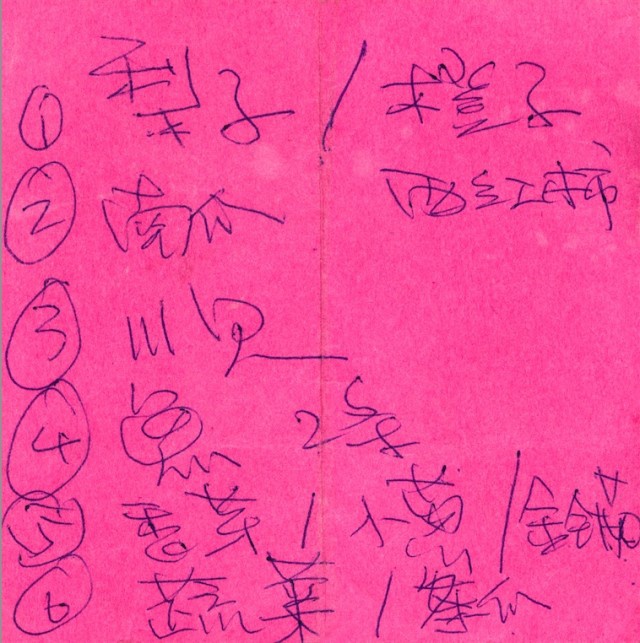 ① 梨子 / 橙子
② 南瓜 西红柿
③ 川贝
④ 鱼 2条
⑤ 香菜 / 小葱 / 金针菇
⑥ 蔬菜 / 冬瓜